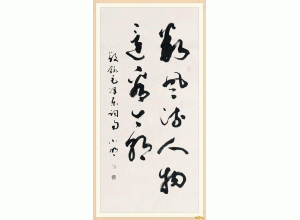 数风流人物
还看今朝
敬录毛泽东词句